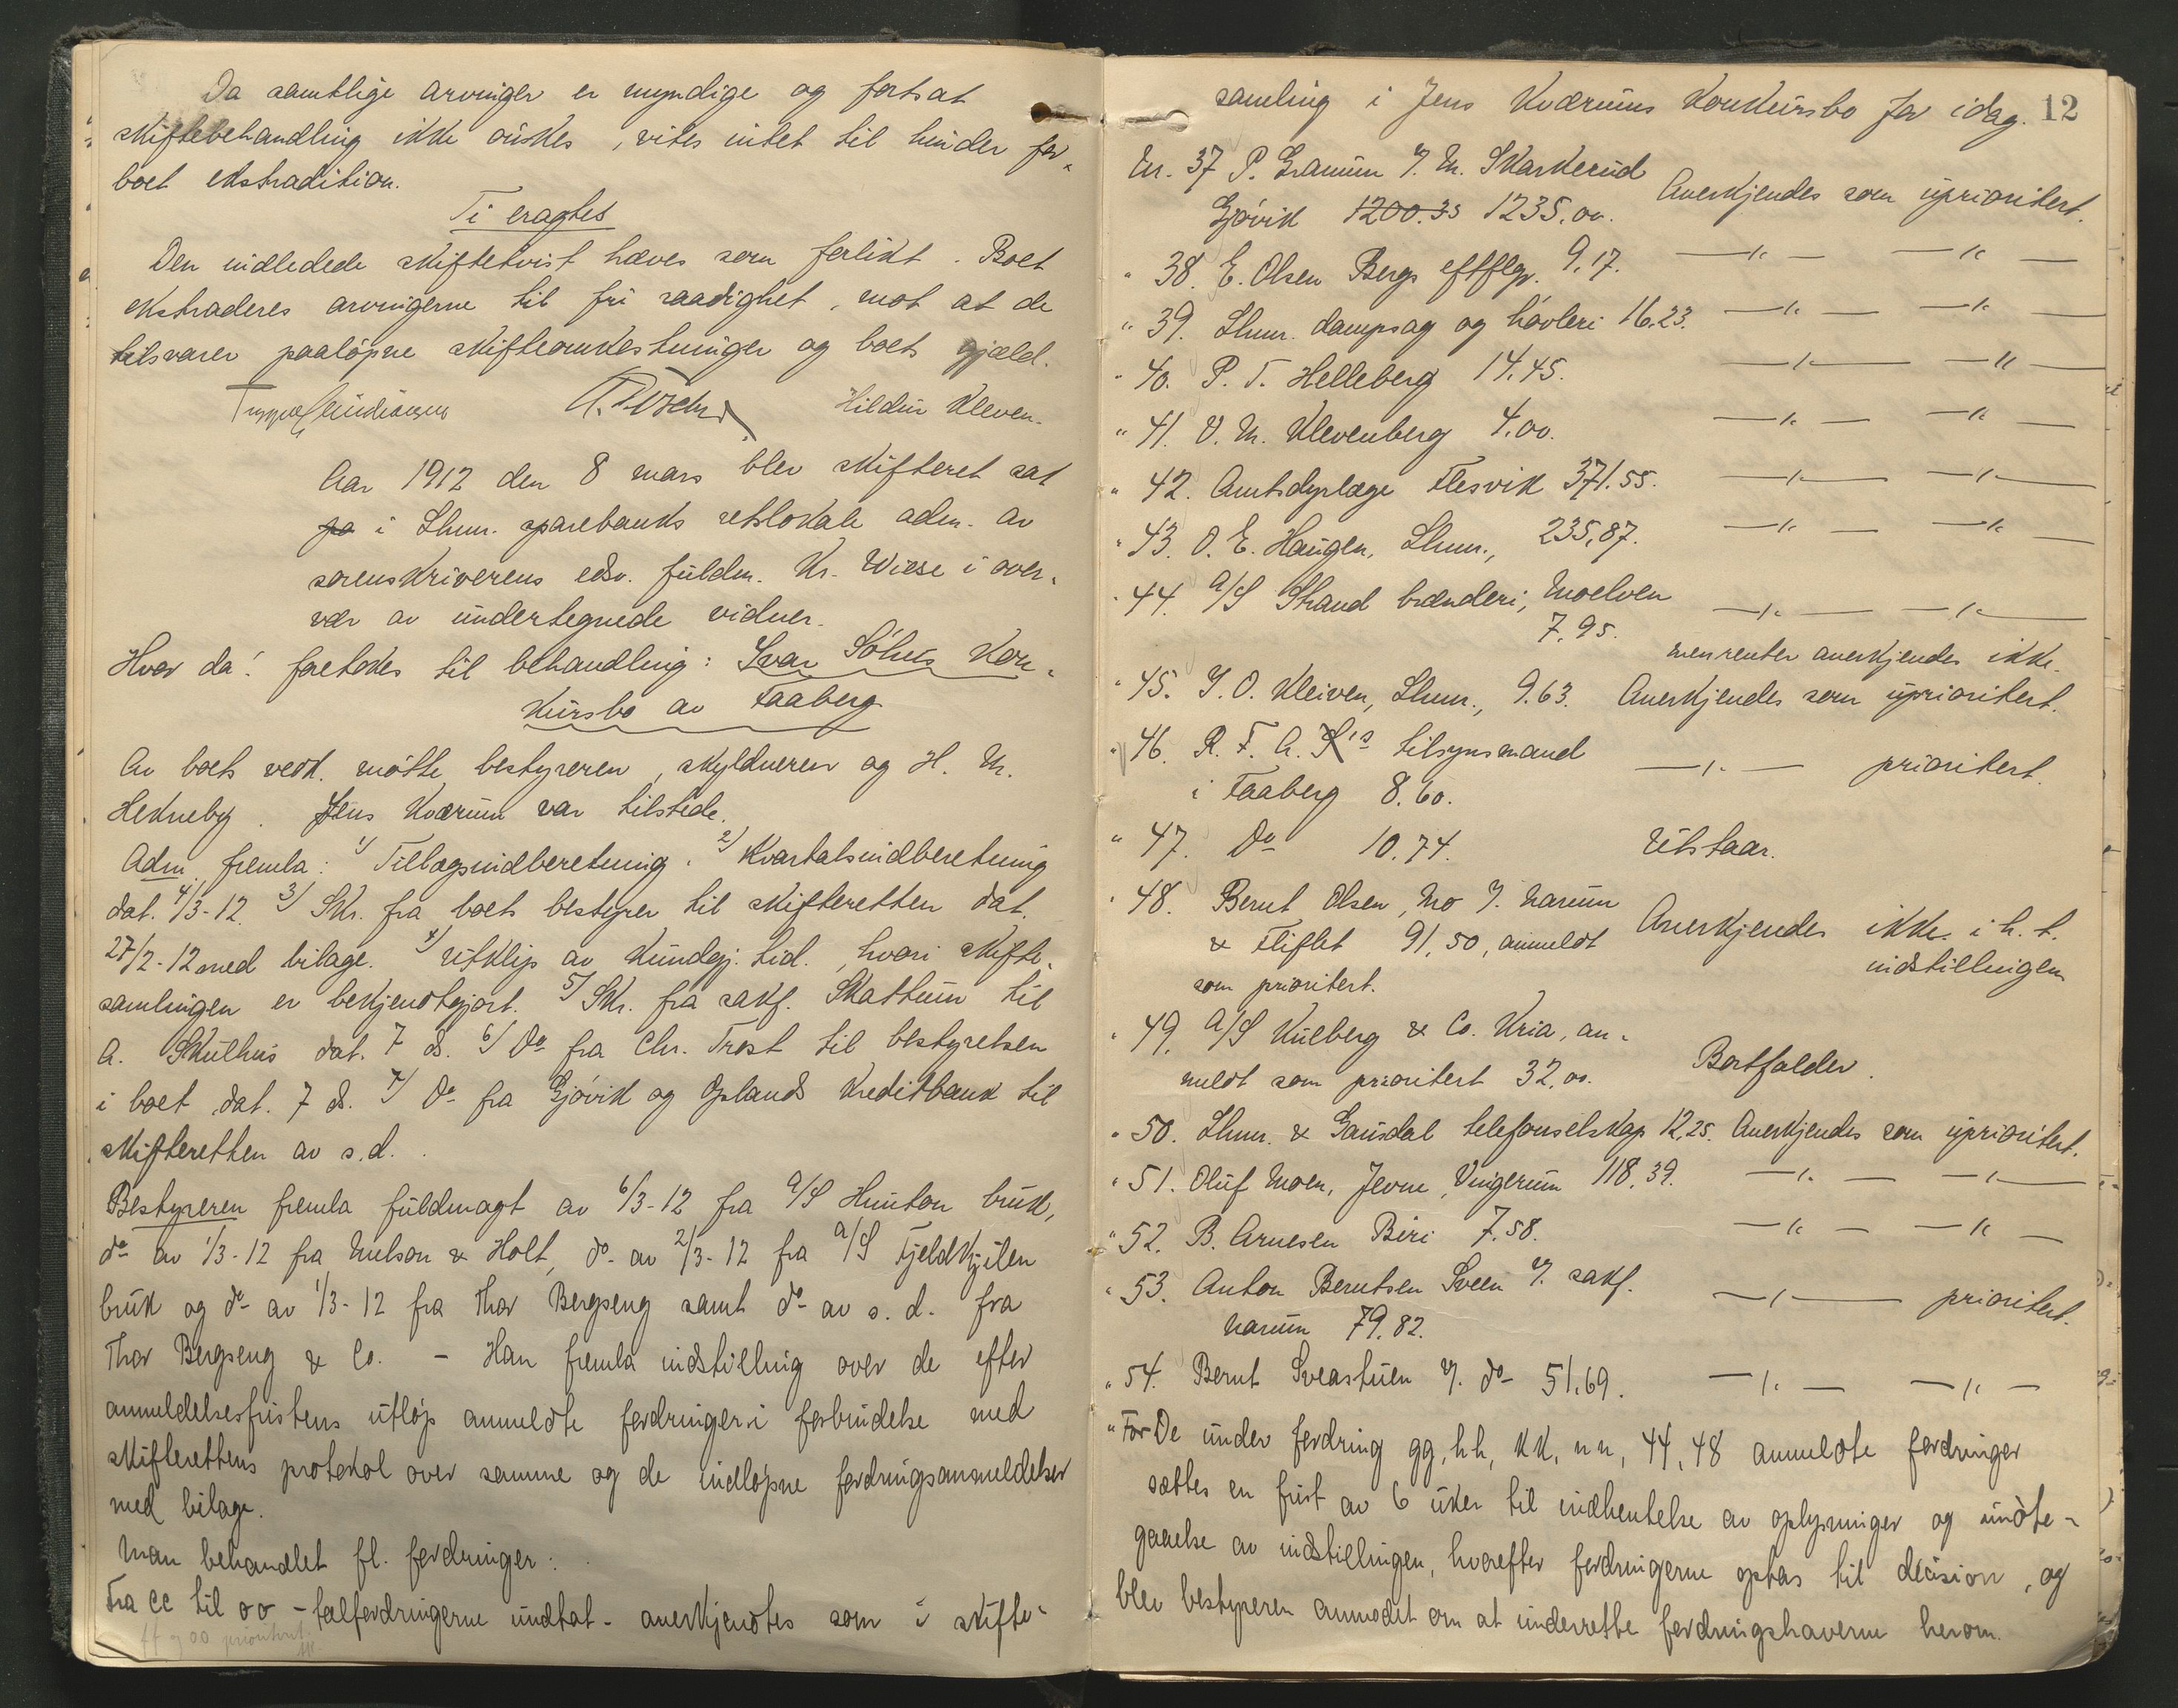 Da samtlige arvinger er myndige og fortsat
skiftebehandling ikke ønskes, vites intet til hinder for
boet ekstradition.
Ti eragtes
Den indledede skiftetvist hæves som forlikt. Boet
ekstraderes arvingerne til fri raadighet, mot at de
tilsvarer paaløpne skifteomkostninger og boets gjæld.
Hildur Kleven.
Aar 1912 den 8 mars blev skifteret sat
pa i Lhmr. sparebanks retslokale adm. av
sorenskriverens edsv. fuldm. Kr. Wiese i over-
vær av undertegnede vidner.
Hvor da: foretokes til behandling: Ivar Sølies Kon-
kursbo av Faaberg
Av boets vedk. møtte bestyreren, skyldneren og H. M.
Hekneby. Jens Kværum var tilstede.
Adm. fremla: 1) Tillægsindberetning. 2) Kvartalsindberetning
dat. 4/3-12. 3) Skr. fra boets bestyrer til skifteretten dat.
27/2-12 med bilage. 4) Utklip av Kundgj. tid., hvori skifte-
samlingen er bekjendtgjort. 5) Skr. fra sakf. Skattum til
A. Skulhus dat. 7 ds. 6) Do fra Chr. Trost til bestyrelsen
i boet dat. 7 ds. 7) Do fra Gjøvik og Oplands Kreditbank til
skifteretten av s.d.
Bestyreren fremla fuldmagt av 6/3-12 fra A/S Hunton bruk,
do av 1/3-12 fra Nielson & Holt, do av 2/3-12 fra A/S Fjeldkjilen
bruk og do av 1/3-12 fra Thor Bergseng samt do av s.d. fra
Thor Bergseng & Co. – Han fremla indstilling over de efter
anmeldelsesfristens utløp anmeldte fordringer i forbindelse med
skifterettens protokol over samme og de indløpne fordringsanmeldelser
med bilage.
Man behandlet fl. fordringer:
Fra cc til oo – fælfordringerne undtat – anerkjendtes som i skifte-
ff og oo prioritert.
12
samling i Jens Kværums Konkursbo for idag.
Nr. 37 P. Granum v. M. Skarkerud
Gjøvik 1200.35 1235.00. Anerkjendes som uprioritert.
" 38. E. Olsen Bergs eftflgr. 9.17. —"— —"—
" 39. Lhmr. dampsag og høvleri 16.23. —"— —"—
" 40. P. T. Helleberg 14.45. —"— —"—
" 41. O. M. Klevenberg 4.00. —"— —"—
" 42. Amtsdyrlæge Flesvik 371.55. —"— —"—
" 43. O. E. Haugen, Lhmr., 235,87. —"— —"—
" 44. A/S Strand brænderi, Moelven —"— —"—
7.95. men renter anerkjendes ikke.
" 45. J. O. Kleiven, Lhmr., 9.63. Anerkjendes som uprioritert.
" 46. R. F. A. tilsynsmand
i Faaberg 8.60. —"— prioritert.
" 47. Do 10.74. Utstaar.
" 48. Bernt Olsen, Mo v. Narum
& Fliflet 91,50, anmeldt Anerkjendes ikke i h. t.
som prioritert. indstillingen
" 49. A/S Kulberg & Co. Kria, an-
meldt som prioritert 32,00. Bortfalder.
" 50. Lhmr. & Gausdal telefonselskap 12,25. Anerkjendes som uprioritert.
" 51. Oluf Moen, Jevne, Vingerum 118.39. —"— —"—
" 52. B. Arnesen Biri 7.58. —"— —"—
" 53. Anton Berntsen Sveen v. sakf.
Narum 79.82. —"— prioritert.
" 54. Bernt Sveastuen v. do 51.69. —"— —"—
" For De under fordring gg, hh, kk, nn, 44, 48 anmeldte fordringer
sættes en frist av 6 uker til indhentelse av oplysninger og imøte-
gaaelse av indstillingen, hvorefter fordringerne optas til decision, og
blev bestyreren anmodet om at underrette fordringshaverne herom.